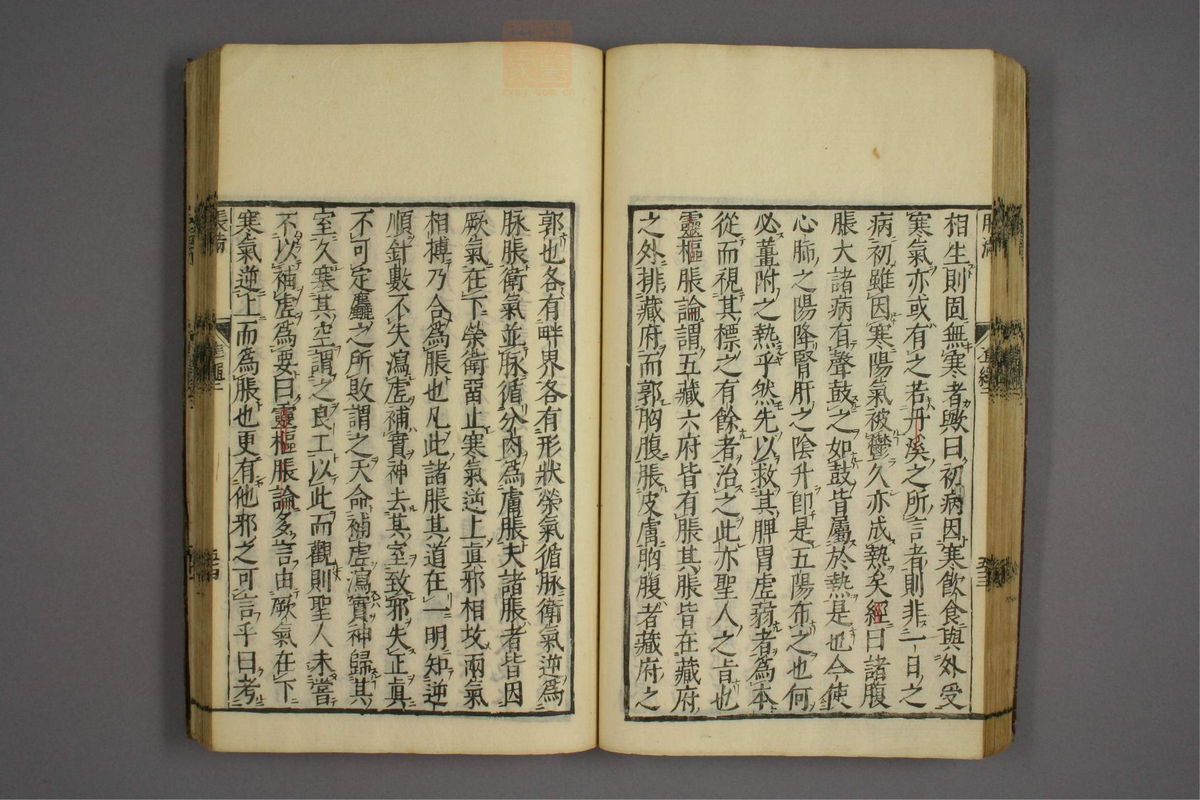 相生則固無寒者歟曰初病因寒飲食與外受
寒氣亦或有之若丹溪之所言者則非一日之
病初雖因寒陽氣被鬱久亦成熱矣經曰諸腹
脹大諸病有聲鼓之如鼓皆屬於熱是也今使
心肺之陽降腎肝之陰升卽是五陽布之也何
必薑附之熱乎然先以救其脾胃虛弱者為本
從而視其標之有餘者治之此亦聖人之旨也
靈樞脹論謂五藏六府皆有脹其脹皆在藏府
之外排藏府而郭胸腹脹皮膚胸腹者藏府之
郭也各有畔界各有形狀榮氣循脉衛氣逆為
脉脹衛氣並脉循分肉為膚脹夫諸脹者皆因
厥氣在下榮衛畱止寒氣逆上眞邪相攻兩氣
相搏乃合為脹也凡此諸脹其道在一明知逆
順針數不失瀉虛補實神去其室致邪失正眞
不可定麤之所敗謂之天命補虛瀉實神歸其
室久塞其空謂之良工以此而觀則聖人未嘗
不以補虛為要曰靈樞脹論多言由厥氣在下
寒氣逆上而為脹也更有他邪之可言乎曰考